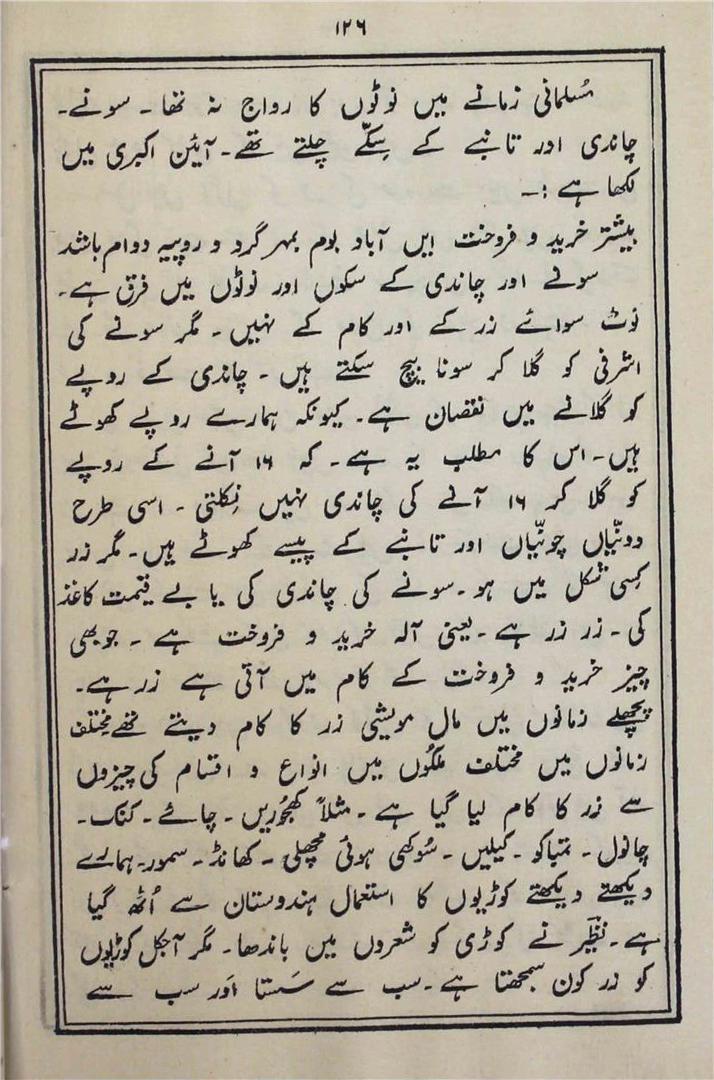 ۱۲۶
مُسلمانی زمانے میں نوٹوں کا رواج نہ تھا۔ سونے۔
چاندی اور تانبے کے سِکّے چلتے تھے۔ آئین اکبری میں
لکھا ہے :۔
بیشتر خرید و فروخت ایں آباد بوم بمہر گرد و روپیہ دوام باشد
سونے اور چاندی کے سکوں اور نوٹوں میں فرق ہے۔
نوٹ سوائے زر کے اور کام کے نہیں۔ مگر سونے کی
اشرفی کو گلا کر سونا بیچ سکتے ہیں۔ چاندی کے روپے
کو گلانے میں نقصان ہے۔ کیونکہ ہمارے روپے کھوٹے
ہیں۔ اس کا مطلب یہ ہے۔ کہ ۱۶ آنے کے روپے
کو گلا کر ۱۶ آنے کی چاندی نہیں نِکلتی۔ اسی طرح
دونّیاں چونّیاں اور تانبے کے پیسے کھوٹے ہیں۔ مگر زر
کِسی شکل میں ہو۔ سونے کی چاندی کی یا بے قیمت کاغذ
کی۔ زر زر ہے۔ یعنی آلہ خرید و فروخت ہے۔ جو بھی
چیز خرید و فروخت کے کام میں آتی ہے زر ہے۔
پچھلے زمانوں میں مال مویشی زر کا کام دیتے تھے مختلف
زمانوں میں مختلف ملکُوں میں انواع و اقسام کی چیزوں
سے زر کا کام لیا گیا ہے۔ مثلاً کھجُوریں۔ چائے۔ کنک۔
چانول۔ تمباکو۔ کیلیں۔ سُوکھی ہوئی مچھلی۔ کھانڈ۔ سمور۔ ہمارے
دیکھتے دیکھتے کوڑیوں کا استعمال ہندوستان سے اُٹھ گیا
ہے۔ نظیر نے کوڑی کو شعروں میں باندھا۔ مگر آجکل کوڑیوں
کو زر کون سمجھتا ہے۔ سب سے سَستا اَور سب سے